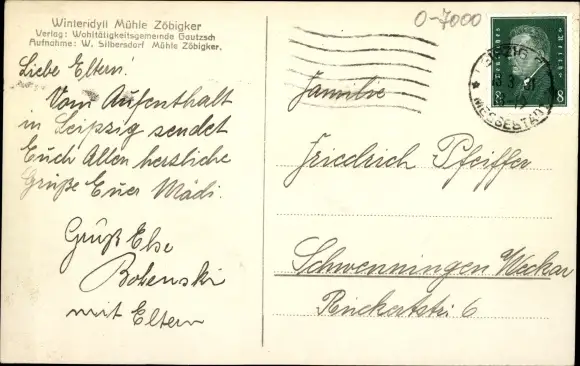 Winteridyll Mühle Zöbigker
Verlag: Wohltätigkeitsgemeinde Gautzsch
Aufnahme: W. Silbersdorf Mühle Zöbigker.
0-7000
Liebe Eltern!
Vom Aufenthalt
in Leipzig sendet
Euch Allen herzliche
Grüße Euer Mädi.
Gruß Else
Bobenski
mit Eltern
LEIPZIG
MESSESTADT
8 8
Familie
Friedrich Pfeiffer
Schwenningen Neckar
6